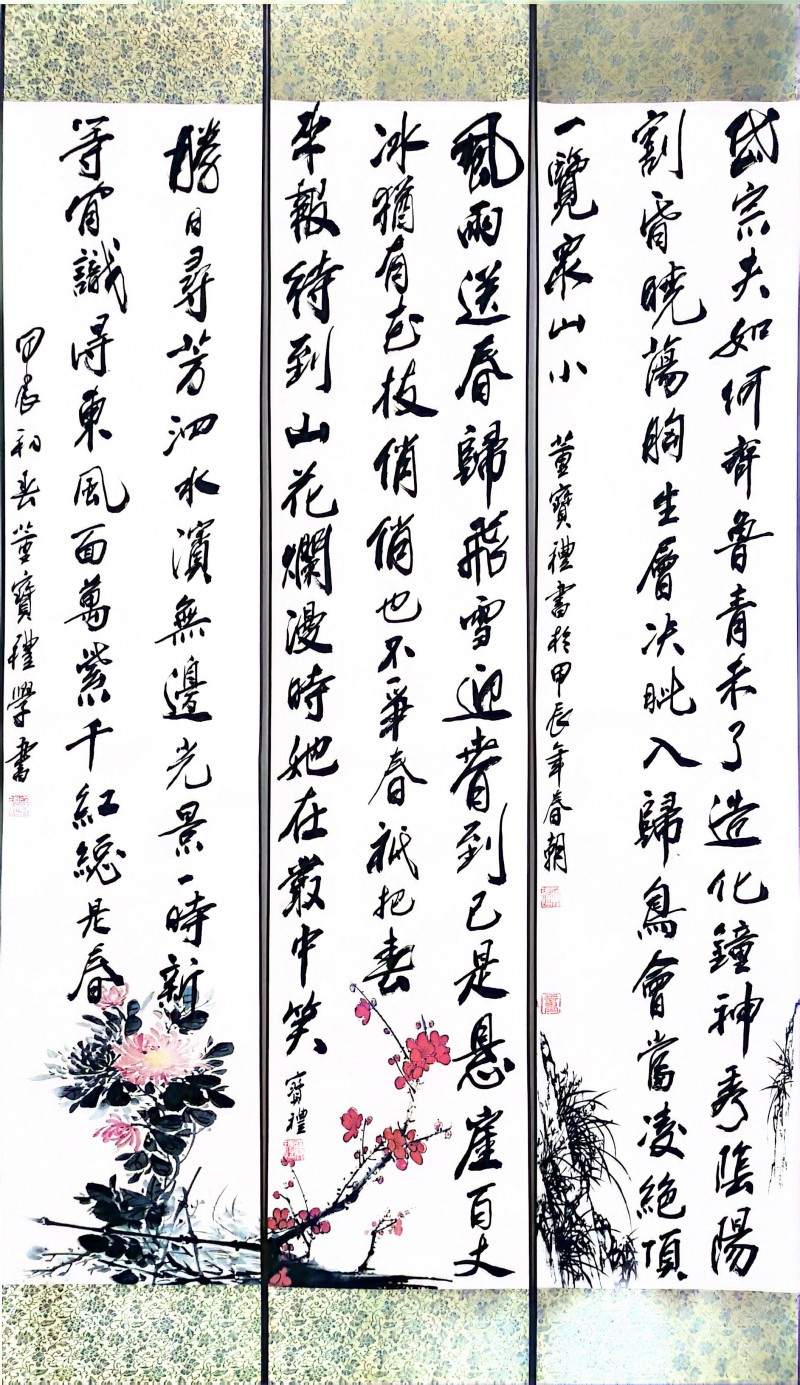 岱宗夫如何齊魯青未了造化鐘神秀陰陽
割昏曉蕩胸生層决眦入歸鳥會當凌絕頂
一覽眾山小
董寶禮書於甲辰年春朝
風雨送春歸飛雪迎春到已是懸崖百丈
冰猶有花枝俏俏也不爭春祇把春
來報待到山花爛漫時她在叢中笑
寶禮
勝日尋芳泗水濱無邊光景一時新
等閒識得東風面萬紫千紅總是春
甲辰初春董寶禮學書